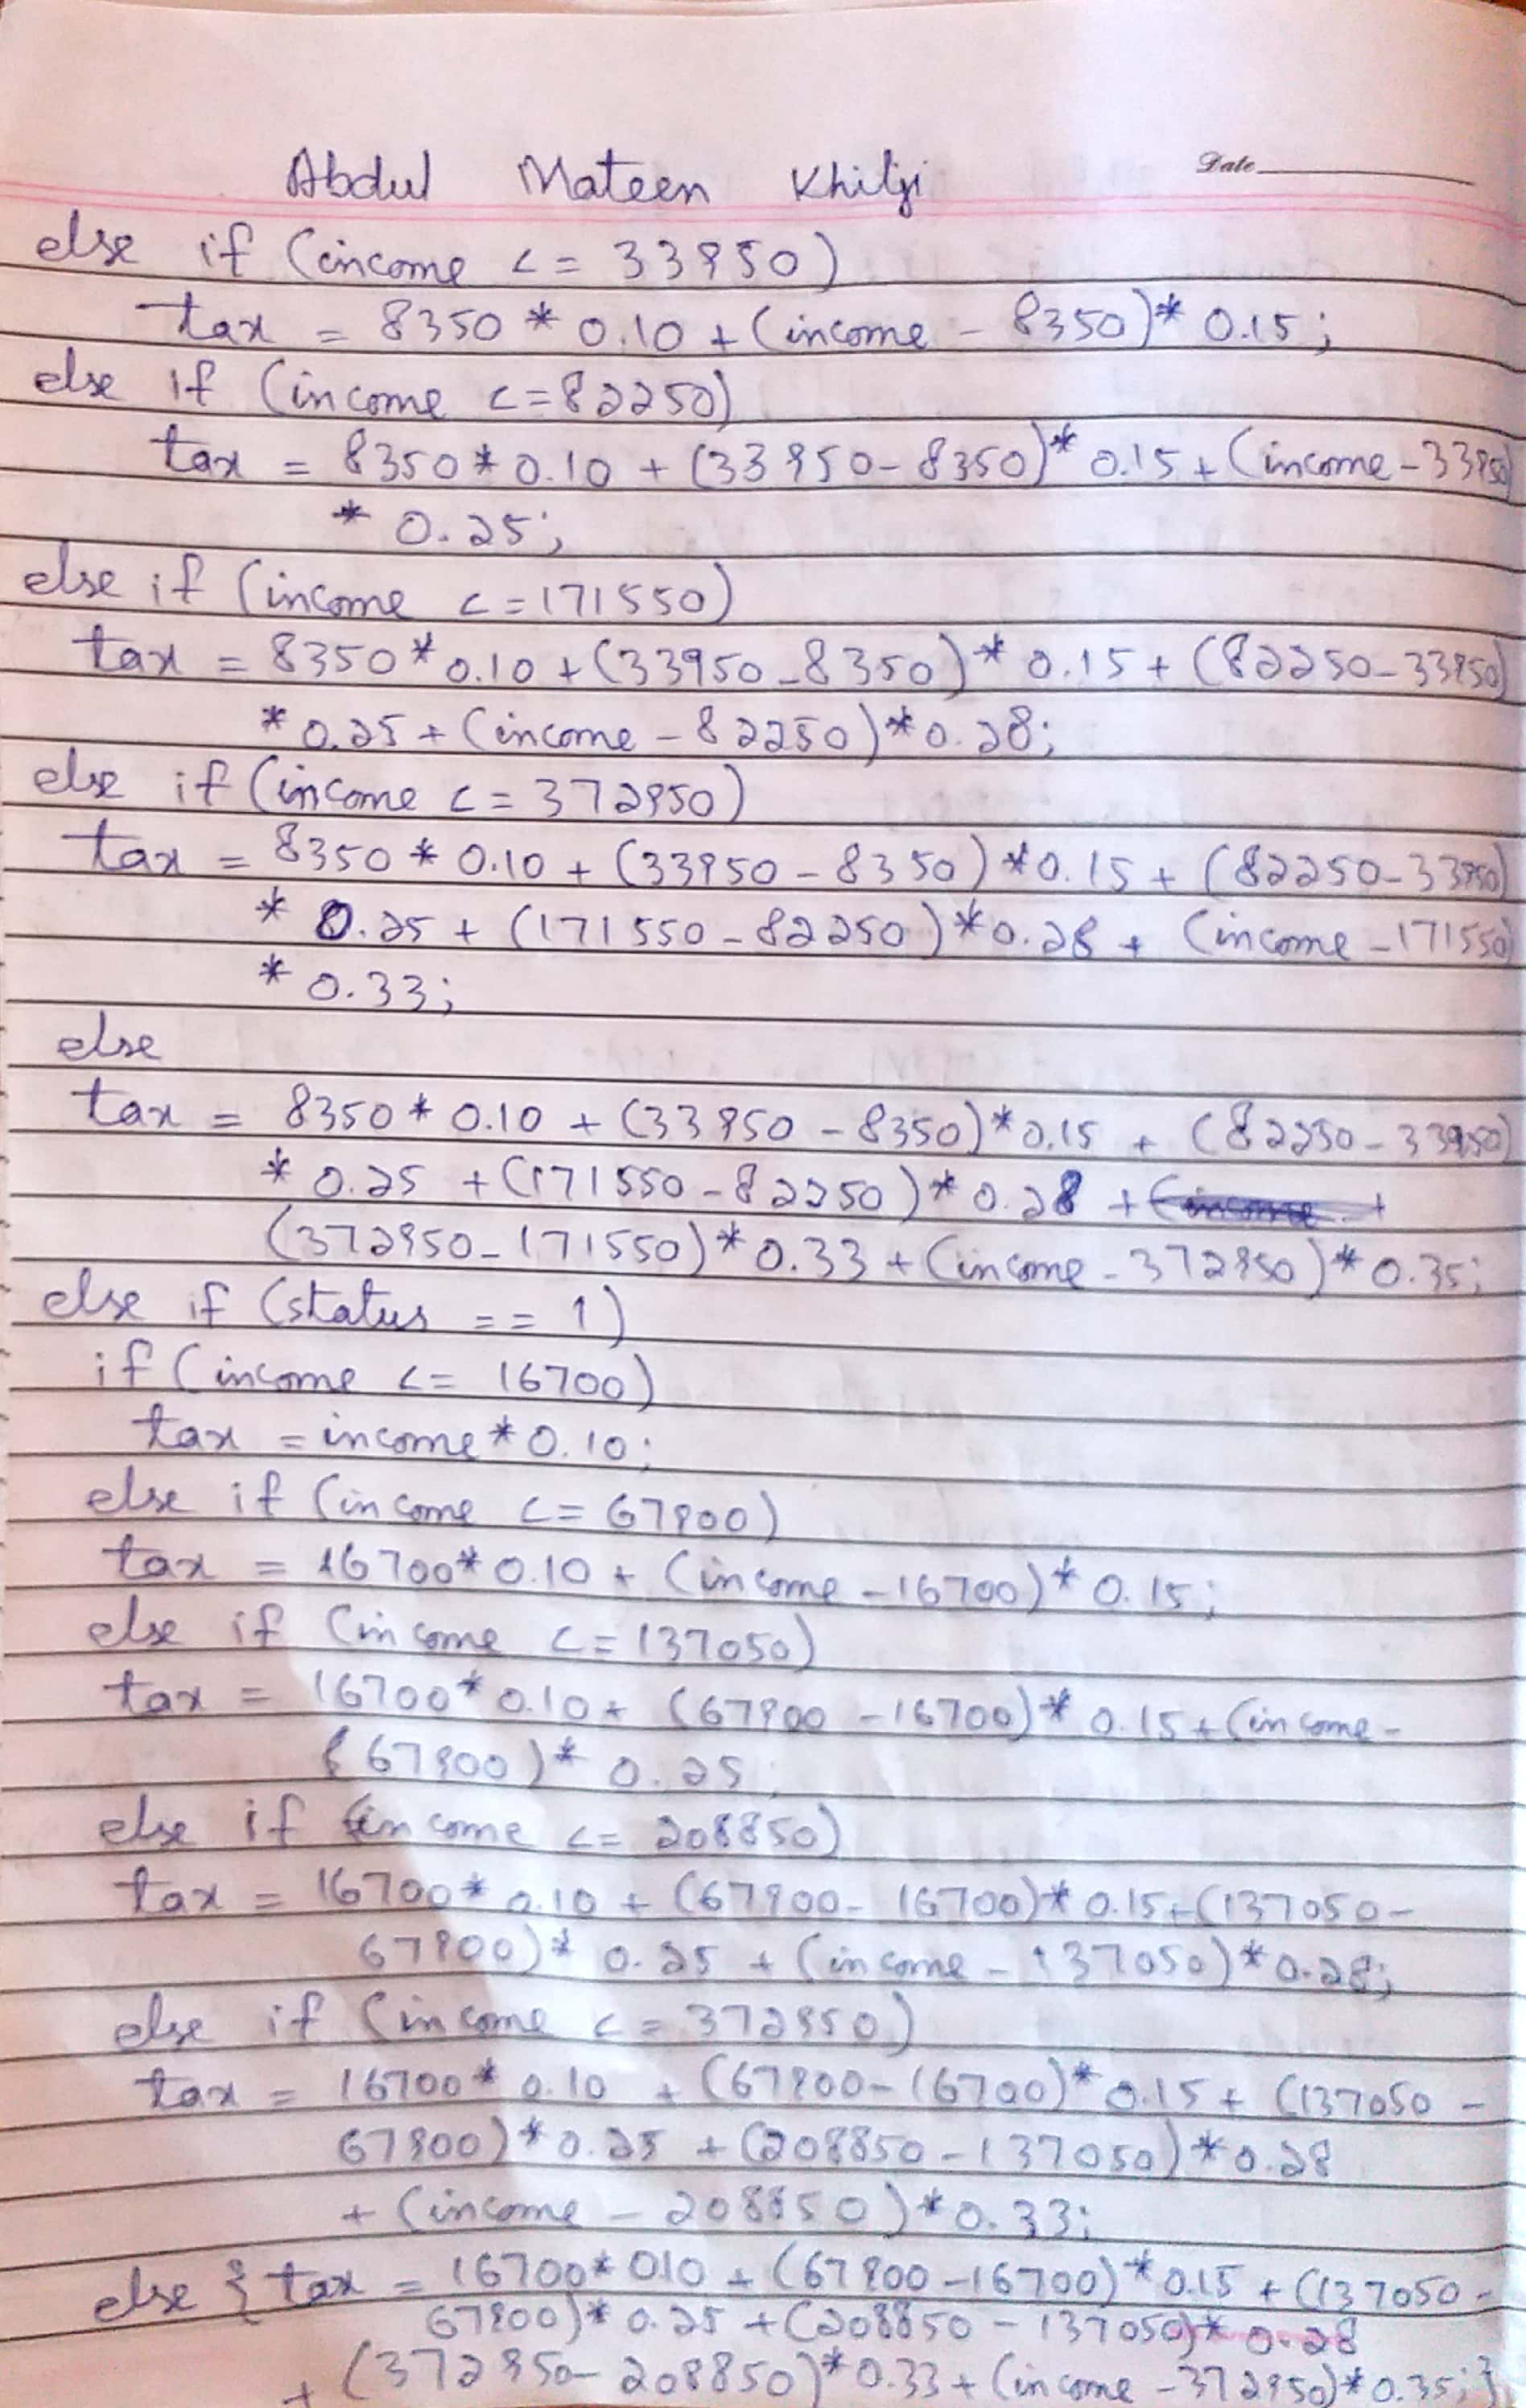 Abdul Mateen Khilji
Date
else if (income <= 33950)
tax = 8350 * 0.10 + (income - 8350)* 0.15;
else if (income <=82250)
tax = 8350 * 0.10 + (33950-8350)* 0.15 + (income-33950)
* 0.25;
else if (income <=171550)
tax = 8350* 0.10 + (33950-8350)* 0.15 + (82250-33950)
* 0.25 + (income - 82250)*0.28;
else if (income <= 372950)
tax = 8350 * 0.10 + (33950 - 8350) *0.15 + (82250-33950)
* 0.25 + (171550-82250)*0.28 + (income-171550)
* 0.33;
else
tax = 8350 * 0.10 + (33950 - 8350)*0.15 + (82250-33950)
* 0.25 + (171550-82250)* 0.28 +
(372950-171550)* 0.33 + (income-372950)* 0.35;
else if (status == 1)
if (income <= 16700)
tax = income * 0.10;
else if (income <= 67900)
tax = 16700* 0.10 + (income-16700)* 0.15;
else if (income <= 137050)
tax = 16700* 0.10+ (67900-16700)* 0.15 + (income-
67900)* 0.25;
else if (income <= 208850)
tax = 16700* 0.10 + (67900- 16700)* 0.15+(137050-
67900)* 0.25 + (income - 137050)*0.28;
else if (income <= 372950)
tax = 16700* 0.10 + (67900-16700)* 0.15 + (137050 -
67900)*0.25 + (208850-137050)*0.28
+ (income - 208850)*0.33;
else { tax = 16700* 010 + (67900-16700)*0.15 + (137050-
67900)* 0.25 + (208850 - 137050)* 0.28
+ (372950- 208850)*0.33 + (income -372950)* 0.35;}